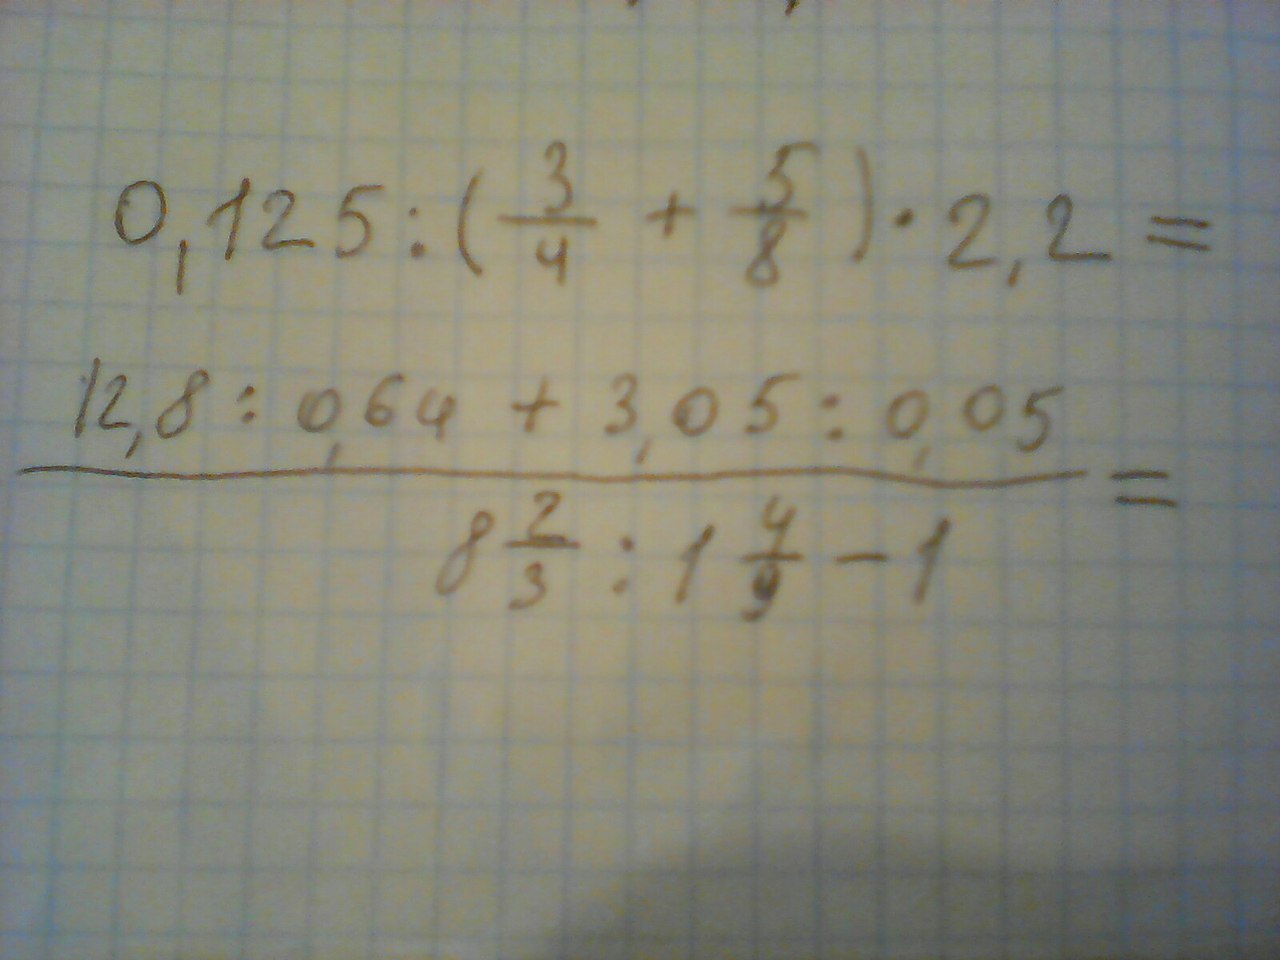 0,125:(3/4 + 5/8)·2,2=
12,8:0,64+3,05:0,05
=
8 2/3 : 1 4/9 - 1